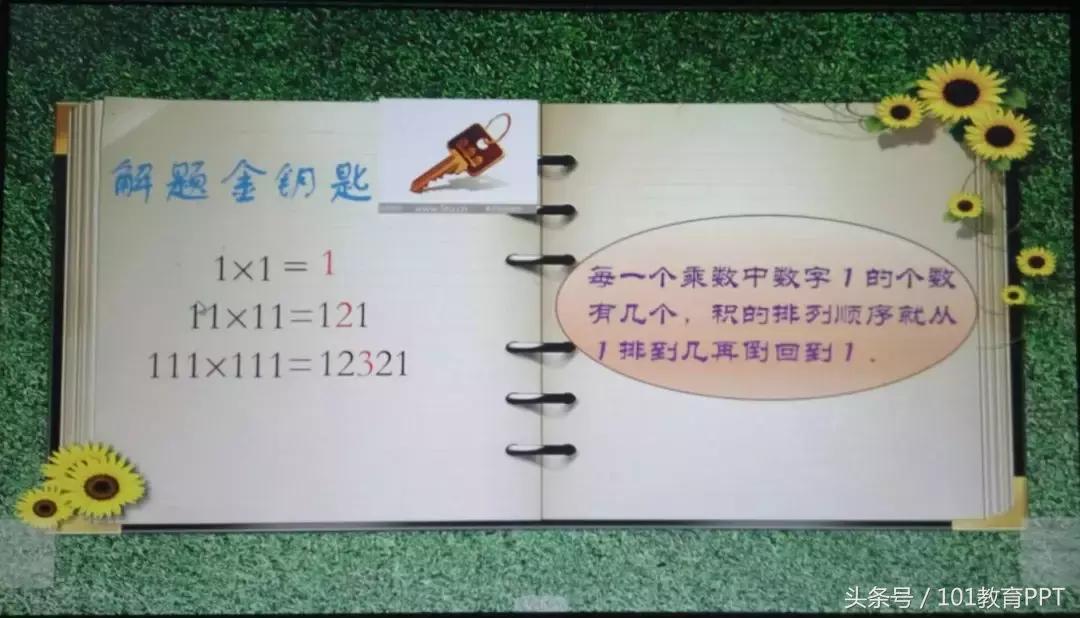 解题金钥匙
1×1=1
11×11=121
111×111=12321
每一个乘数中数字1的个数
有几个，积的排列顺序就从
1排到几再倒回到1．
头条号 / 101教育PPT